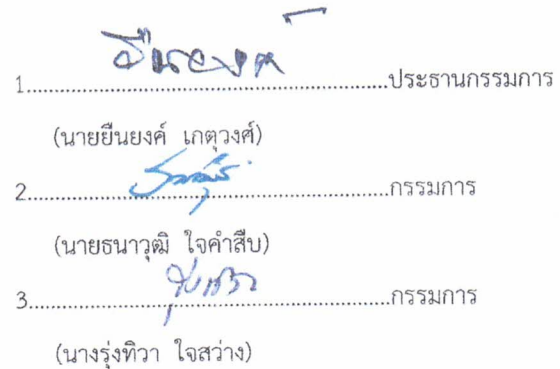 ยืนยงค์
1..............................................................ประธานกรรมการ
(นายยืนยงค์ เกตุวงศ์)
2..............................................................กรรมการ
(นายธนาวุฒิ ใจคำสืบ)
รุ่งทิวา
3..............................................................กรรมการ
(นางรุ่งทิวา ใจสว่าง)